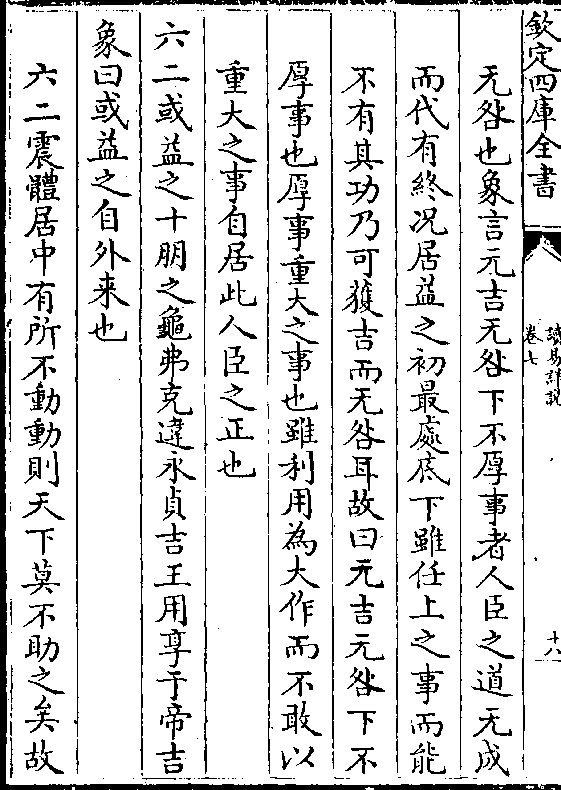 欽定四庫全書
讀易詳說
卷七
十六
无咎也象言元吉无咎下不厚事者人臣之道无成
而代有終况居益之初最處底下雖任上之事而能
不有其功乃可獲吉而无咎耳故曰元吉无咎下不
厚事也厚事重大之事也雖利用為大作而不敢以
重大之事自居此人臣之正也
六二或益之十朋之龜弗克違永貞吉王用享于帝吉
象曰或益之自外来也
六二震體居中有所不動動則天下莫不助之矣故